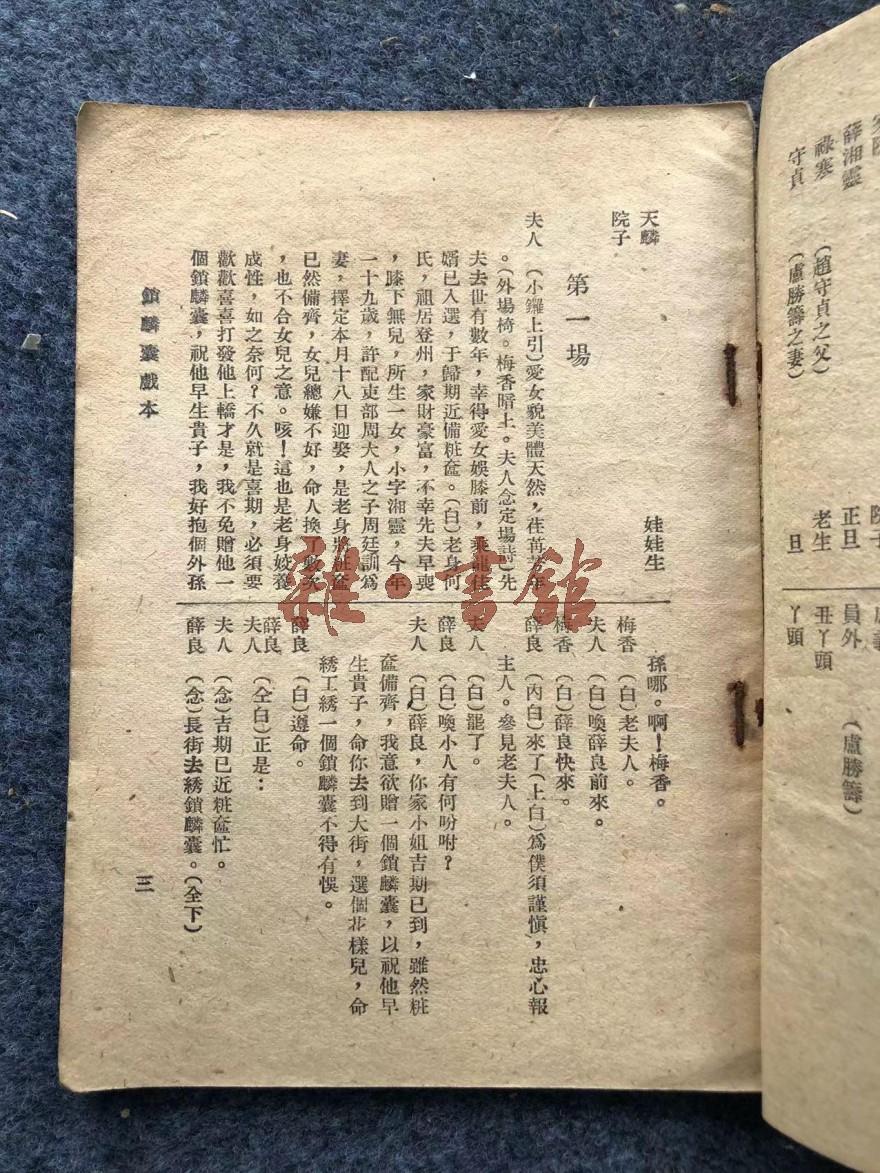 薛湘靈
祿寒　（趙守貞之父）
守貞　（盧勝籌之妻）
院子
正旦
老生
旦
員外　（盧勝籌）
丑丫頭
丫頭
天麟　娃娃生
院子
第一場
夫人　（小鑼上引）愛女貌美體天然，荏苒芳年
。（外場椅。梅香暗上。夫人念定場詩）先
夫去世有數年，幸得愛女娛膝前，乘龍佳
婿已入選，于歸期近備粧奩。（白）老身何
氏，祖居登州，家財豪富，不幸先夫早喪
，膝下無兒，所生一女，小字湘靈，今年
一十九歲，許配吏部周大人之子周廷訓爲
妻，擇定本月十八日迎娶，是老身將粧奩
已然備齊，女兒總嫌不好，命人換了數次
，也不合女兒之意。咳！這也是老身姣養
成性，如之奈何？不久就是喜期，必須要
歡歡喜喜打發他上轎才是，我不免贈他一
個鎖麟囊，祝他早生貴子，我好抱個外孫
孫哪。啊！梅香。
梅香　（白）老夫人。
夫人　（白）喚薛良前來。
梅香　（白）薛良快來。
薛良　（內白）來了（上白）爲僕須謹愼，忠心報
主人。參見老夫人。
夫人　（白）罷了。
薛良　（白）喚小人有何吩咐？
夫人　（白）薛良，你家小姐吉期已到，雖然粧
奩備齊，我意欲贈一個鎖麟囊，以祝他早
生貴子，命你去到大街，選個花樣兒，命
綉工綉一個鎖麟囊不得有悞。
薛良　（白）遵命。
薛良
夫人　（仝白）正是：
夫人　（念）吉期已近粧奩忙。
薛良　（念）長街去綉鎖麟囊。（全下）
鎖麟囊戲本　三
雜·書館